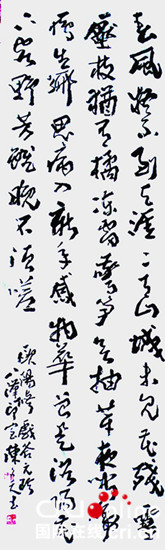 春風疑不到天涯二月山城未見花殘雪
壓枝猶有橘凍雷驚筍欲抽芽夜聞歸
雁生鄉思病入新年感物華曾是洛陽花
下客野芳雖晚不須嗟
歐陽修戲答元珍
CRI
国际在线